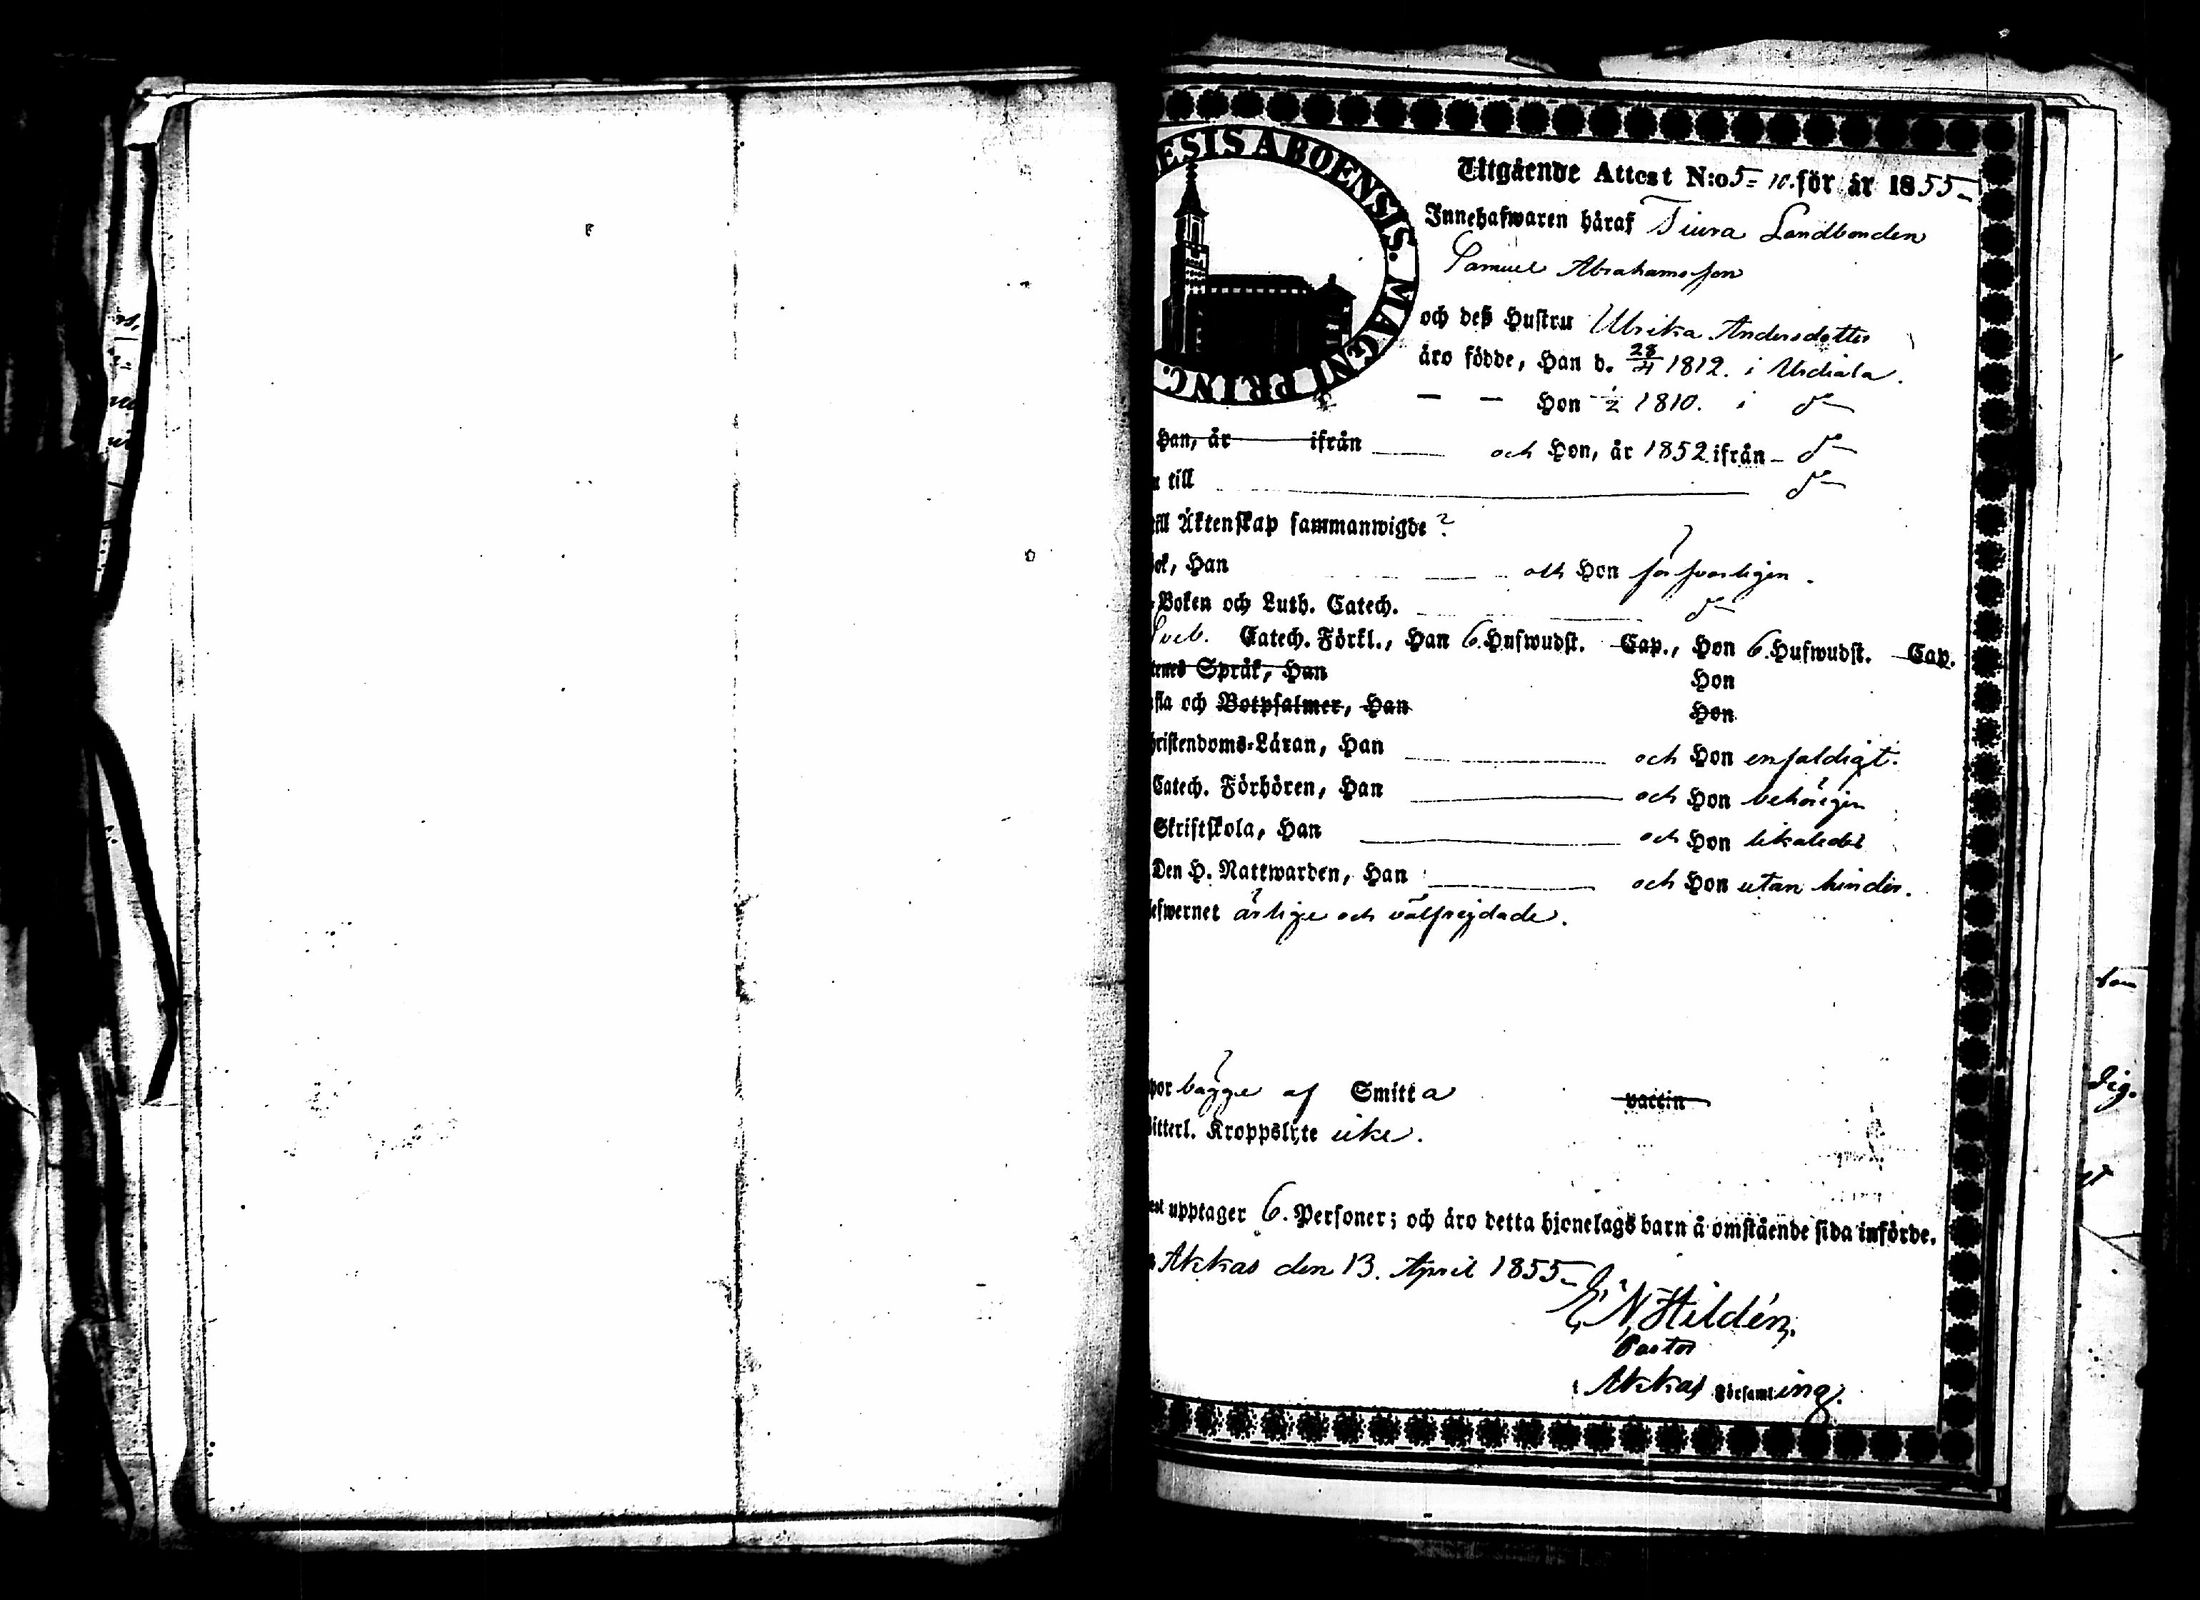 ESIS ABOENSIS. MAGNI PRINC.
Utgående Attest N:o 5-10. för år 1855
Innehafwaren häraf Tiura Landbonden
Samuel Abrahamsson
och deß Hustru Ulrika Andersdotter
äro födde, Han d. 1812. i Urdiala.
— — Hon 1810. i d:o
Han, år ifrån och Hon, år 1852 ifrån d:o
till d:o
till Äktenskap sammanwigde
ok, Han och Hon försvarligen.
Boken och Luth. Catech. d:o
Sveb. Catech. Förkl., Han 6 Hufwudst. Cap., Hon 6. Hufwudst. Cap.
Språk, Han Hon
och Botpsalmer, Han Hon
hristendoms-Läran, Han och Hon enfaldigt.
Catech. Förhören, Han och Hon behörigen
Skriftskola, Han och Hon likaledes
Den H. Nattwarden, Han och Hon utan hinder.
efwernet ärlige och välfrejdade.
por bägge af Smitta vaccin
itterl. Kroppslyte icke.
upptager 6. Personer; och äro detta hjonelags barn å omstående sida införde.
Akkas den 13. April 1855
N. Hildén.
Pastor
i Akkas Församling.